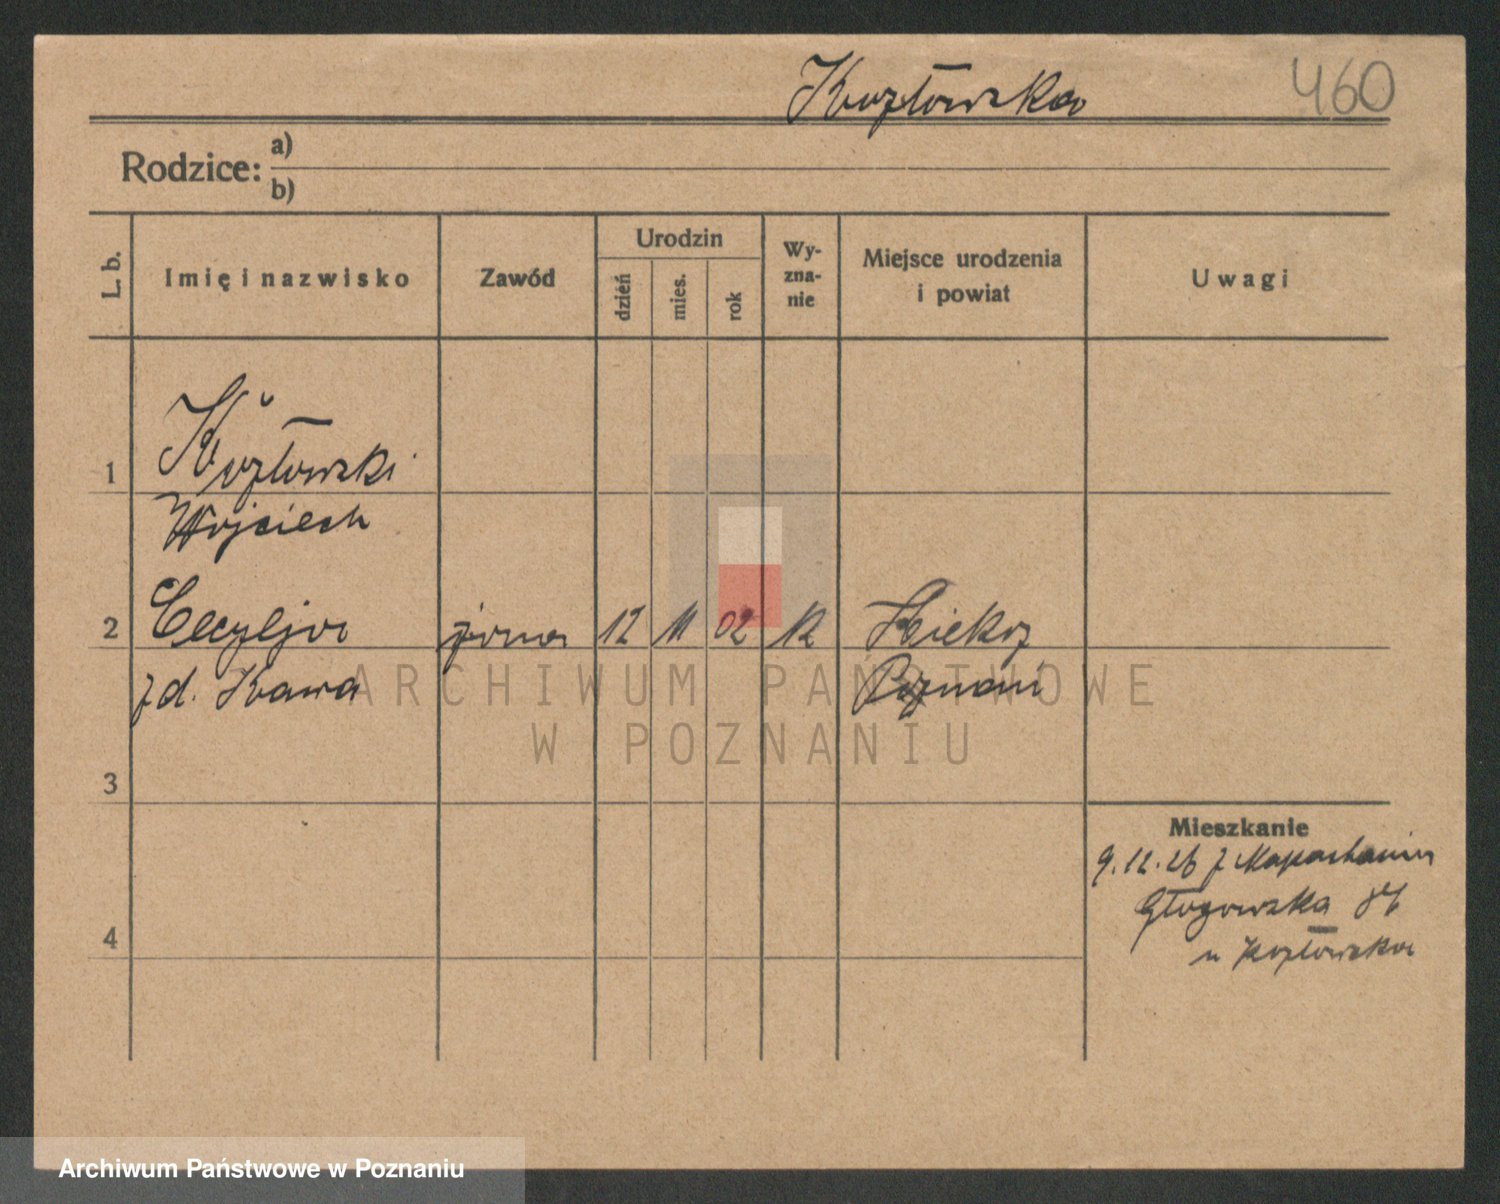 Kozłowska 460
Rodzice: a)
b)
L. b. Imię i nazwisko Zawód Urodzin dzień mies. rok Wy-zna-nie Miejsce urodzenia i powiat Uwagi
1 Kozłowski
Wojciech
2 Cecylja żona 12 11 02 k Kiekrz
z d. Kawa Poznań
ARCHIWUM PAŃSTWOWE
W POZNANIU
3
Mieszkanie
9.12.26 z
Głogowska
4
u Kozłowska
Archiwum Państwowe w Poznaniu